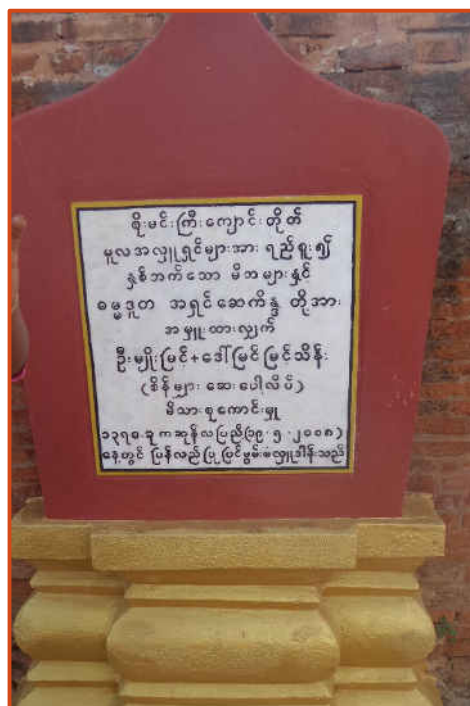 စိုးမင်းကြီးကျောင်းတိုတ်
မူလအလှူရှင်များအား ရည်စူး၍
နှစ်ဘက်သော မိဘများနှင့်
ဓမ္မဒူတ အရှင်ဆေကိန္ဒ တို့အား
အမှူးထားလျှက်
ဦးမျိုးမြင့်+ဒေါ်မြင့်မြင့်သိန်း
(စိန်များ ဆေးပေါ့လိပ်)
မိသားစုကောင်းမှု
၁၃၇၀ခု ကဆုန်လပြည့်(၁၉.၅.၂၀၀၈)
နေ့တွင် ပြန်လည်ပြုပြင်မွမ်းမံလှူဒါန်းသည်